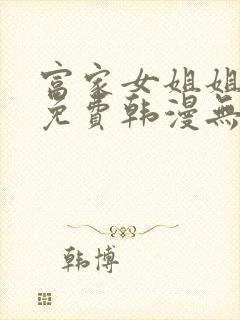 富家女姐姐
免費韩漫無
韩博